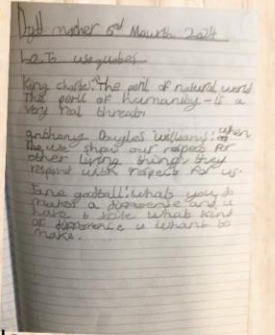 5th 2024
L.O. To use quotes
King charles: "The peril of natural world
The peril of humanity - is a
very real threat."
anthony Douglas williams: "when
we show our respect for
other living things they
respond with respect for us.
Jane goodall: whats you do
makes a difference and u
have to what kind
of difference u whant to
make.